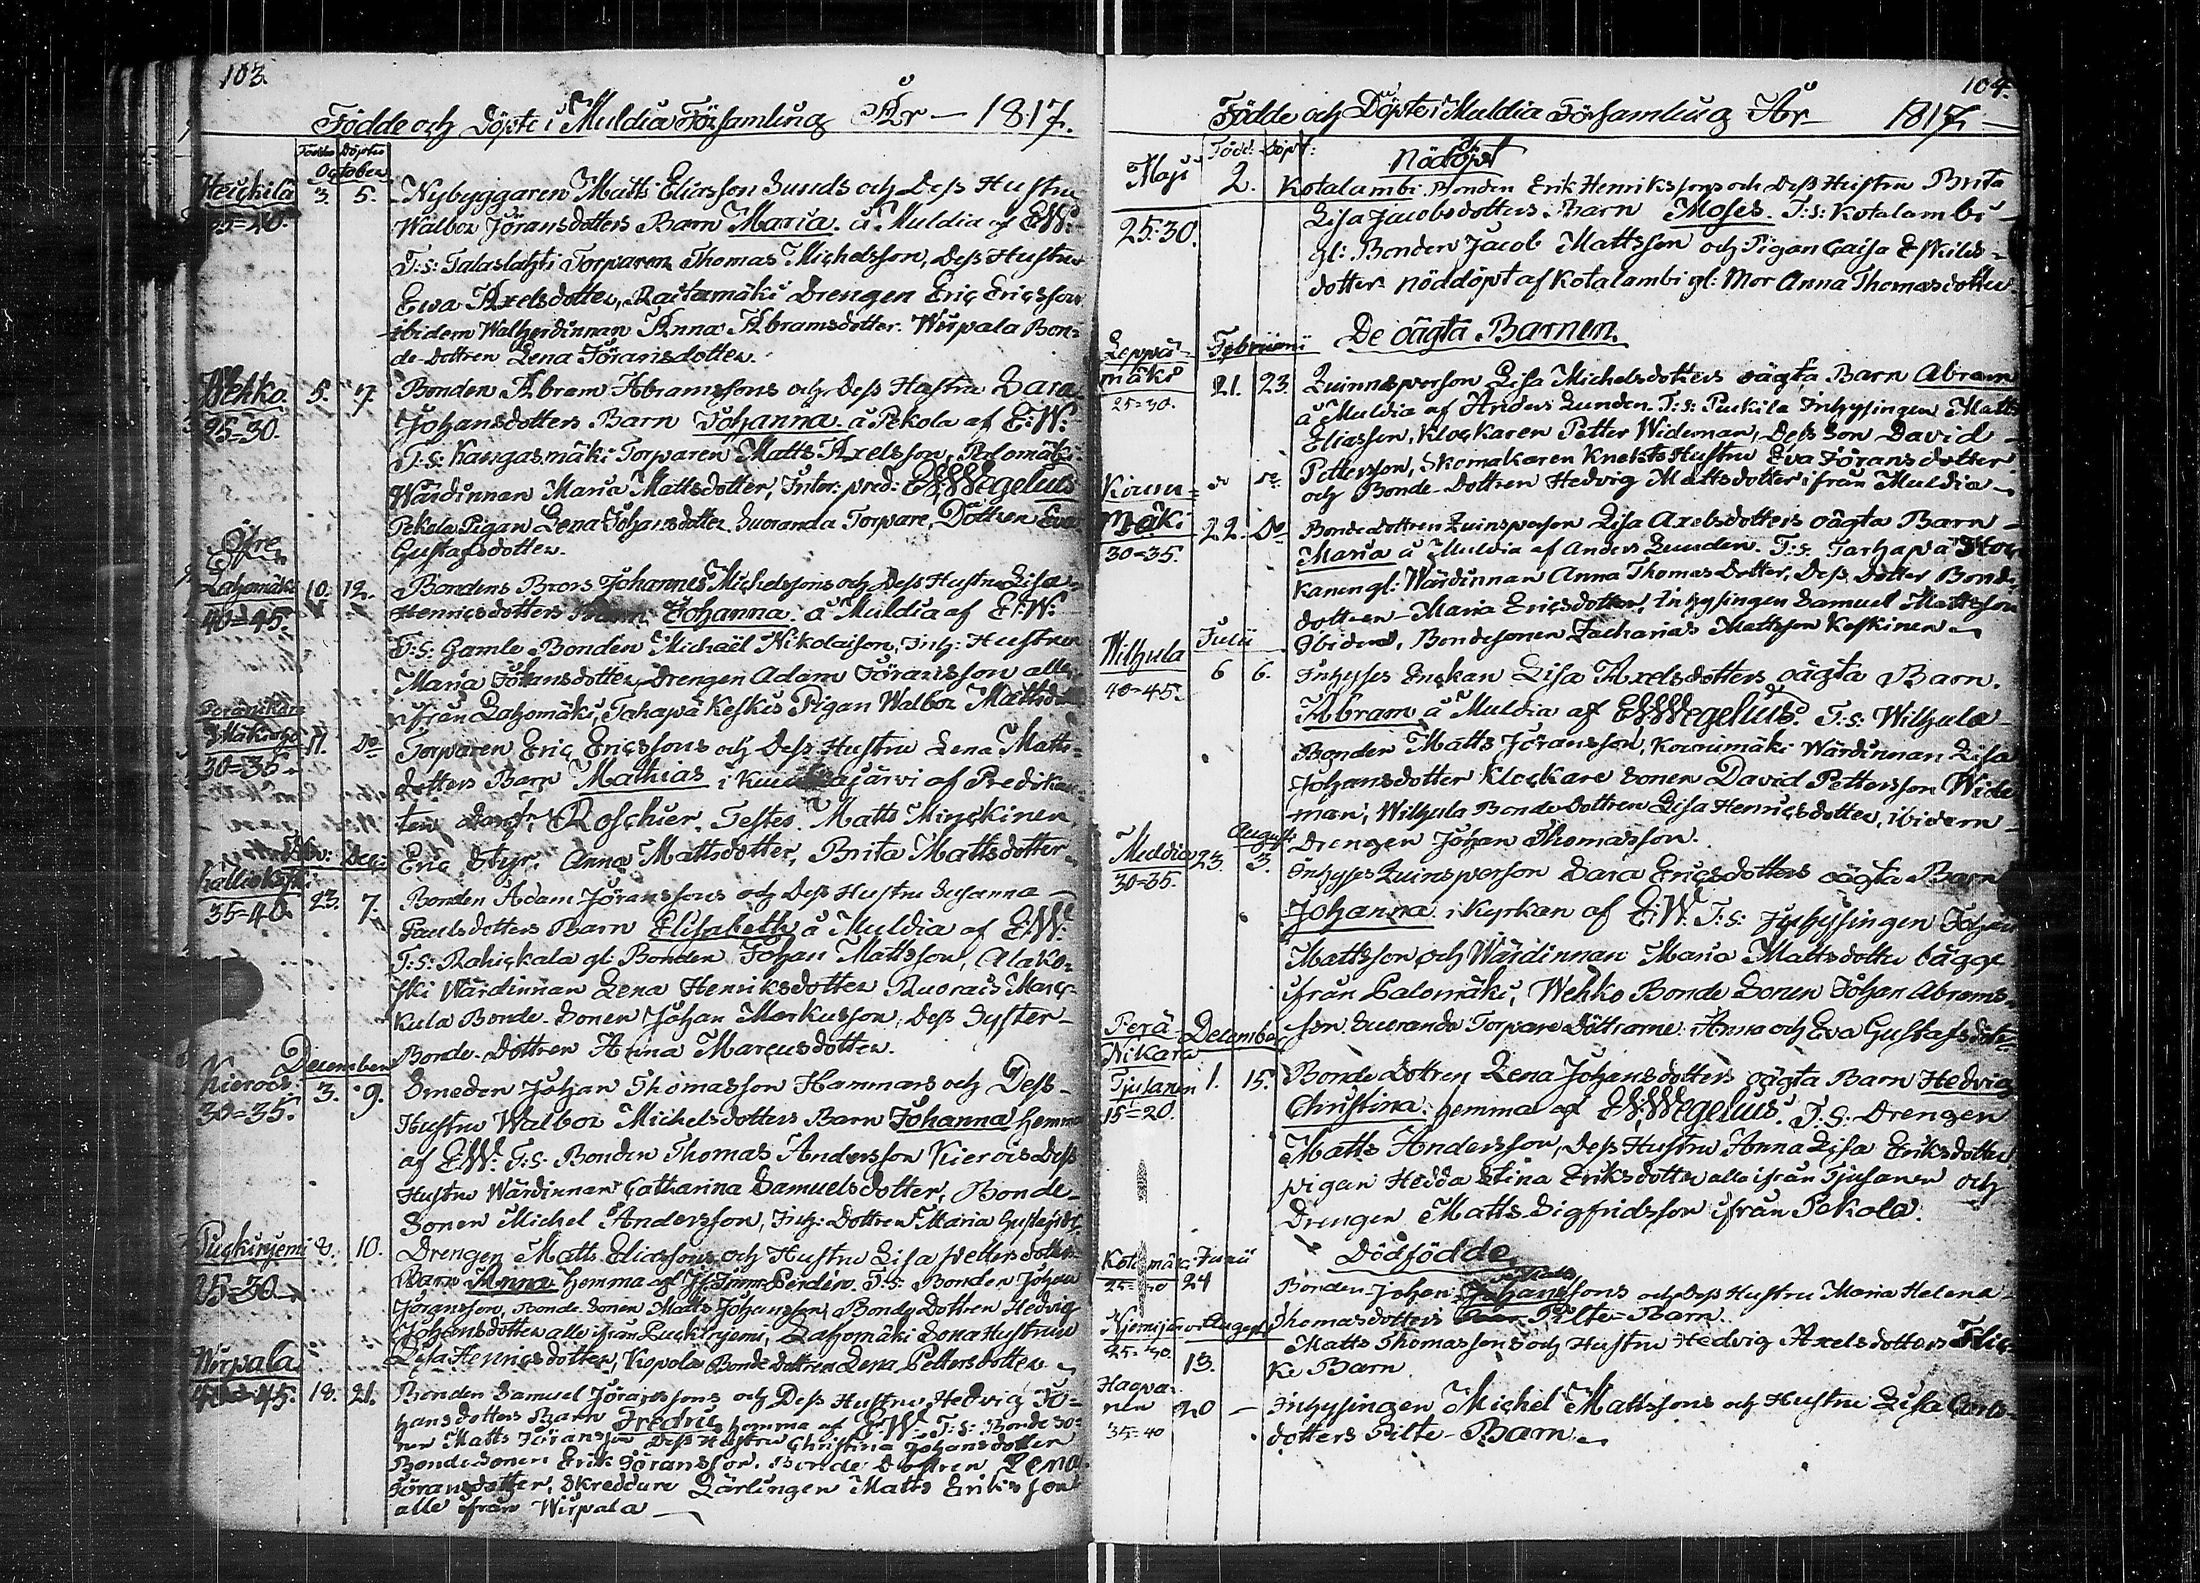 103.
Födde och Döpte i Muldia Församling År - 1817.
Födde Döpte
October
Heickilä 3. 5. Nybyggaren Matts Eliæsson Sunds och Dess Hustru
35=40. Walbor Jöransdotters Barn Maria. å Muldia af E:W:
T:S: Talaslahti Torparen Thomas Michelsson, Dess Hustru
Ewa Axelsdotter, Rautamäki Drengen Eric Ericsson
ibidem Walherdinnan Anna Abramsdotter. Wirpala Bon-
de-dottren Lena Jöransdotter.
Wehko. 5. 7. Bonden Abram Abramssons och Dess Hustru Sara
25=30. Johansdotters Barn Johanna. å Pekola af E:W:
T:S: Kangasmäki Torparen Matts Axelsson, Palomäki
Wärdinnan Maria Mattsdotter, Inter: pred: EWWegelius
Pekola Pigan Lena Johansdotter. Suoranda Torpare Döttren Eva
Gustafsdotter.
Öfre
Lahomäki 10. 12. Bondens Brors Johannes Michelssons och Dess Hustru Lisa
40=45. Henricsdotters Barn Johanna. å Muldia af E:W:
T:S: Gamle Bonden Michaël Nikolaison, Inh: Hustrun
Maria Johansdotter, Drengen Adam Jöransson alla
ifrån Lahomäki, Tarhapä Keskis Pigan Walbor
30=35. 11. Do Torparen Eric Ericssons och Dess Hustru Lena Matts-
dotters Barn Mathias i af Predikan-
ten Roschier. Testes. Matts Minckinen,
Eric Styr. Anna Mattsdotter, Brita Mattsdotter.
Nov: Dec:
Kalliokoski
35=40. 23. 7. Bonden Adam Jöranssons och Dess Hustru Susanna
Paulsdotters Barn Elisabeth å Muldia af E:W:
T:S: Rahickala gl: Bonden Johan Mattsson, Alako-
ski Wärdinnan Lena Henriksdotter Ruorais Marc-
kula Bonde-Sonen Johan Markusson, Dess Syster
Bonde-Dottren Anna Marcusdotter.
December
Kierois 3. 9. Smeden Johan Thomasson Hammars och Dess
30=35. Hustru Walbor Michelsdotters Barn Johanna hemma
af E:W: T:S: Bonden Thomas Andersson Kierois Dess
Hustru Wärdinnan Catharina Samuelsdotter, Bonde-
Sonen Michel Andersson, Inh: Dottren Maria
Puckinjemi 8. 10. Drengen Matts Eliassons och Hustru Lisa Pettersdotters
25=30. Barn Anna hemma af T:S: Bonden Johan
Jöransson, Bonde Sonen Matts Johansson, Bonde Dottren Hedvig
Johansdotter alle ifrån Puckinjemi, Lahomäki Sona Hustrun
Lisa Henricsdotter, Kopola Bonde Dottren Lena Pettersdotter
Wirpala
45. 18. 21. Bonden Samuel Jöranssons och Dess Hustru Hedvig Jo-
hansdotters Barn Fredric hemma af E:W: T:S: Bonde So-
nen Matts Jöransson Dess Hustru Christina Johansdotter
Bonde Sonen Erik Jöransson. Bonde Dottren Lena
Jöransdotter, Skreddare Lärlingen Matts Eriksson
alle ifrån Wirpala
104.
Födde och Döpte i Muldia Församling År 1817.
Född: Döpt:
Nödöpt
Maji 2. Kotalambi Bonden Erik Henrikssons och Dess Hustru Brita
25=30. Lisa Jacobsdotters Barn Moses. T:S: Kotalambi
gl: Bonden Jacob Mattsson och Pigan Caisa Eskils-
dotter. nöddöpt af Kotalambi gl: Mor Anna Thomasdotter
De oägta Barnen.
Leppä-
mäki
25=30.
Februarii
21. 23. Quinnsperson Lisa Michelsdotters oägta Barn Abram
å Muldia af Anders Lunden. T:S: Puckila Inhysingen Matts
Eliasson, Klockaren Petter Wideman, Dess Son David
Pettersson, Skomakaren Knekts Hustru Eva Jöransdotter
och Bonde-Dottren Hedvig Mattsdotter ifrån Muldia
Mäki 22. Do Bonde dottren Quinsperson Lisa Axelsdotters oägta Barn
30=35. Maria å Muldia af Anders Lunden. T:S: Tarhapä
gl: Wärdinnan Anna Thomasdotter, Dess Dotter Bonde
dottren Maria Ericsdotter, Inhysingen Samuel Mattsson
Ibidem, Bondesonen Zacharias Mattsson Keskinen
Wilhula
40=45.
Julii
6 6. Inhyses Enckan Lisa Axelsdotters oägta Barn.
Abram å Muldia af EWWegelius. T:S: Wilhula
Bonden Matts Jöransson, Kourumäki Wärdinnan Lisa
Johansdotter Klockare Sonen David Pettersson Wide
man, Wilhula Bonde Dottren Lisa Henricsdotter, ibidem
Drengen Johan Thomasson.
Augusti
Muldia 23. 3. Inhyses Quinsperson Sara Ericsdotters oägta Barn
30=35. Johanna i Kyrkan af E:W: T:S: Inhysingen Johan
Mattsson och Wärdinnan Maria Mattsdotter bägge
ifrån Palomäki, Wehko Bonde Sonen Johan Abrams-
son Suoranda Torpare Döttrarne Anna och Eva Gustafsdöttr.
Perä
Nikara
Tjusanen
15=20.
December
1. 15. Bonde Dotren Lena Johansdotters oägta Barn Hedvig
Christina. hemma af EWWegelius. T:S: Drengen
Matts Andersson, Dess Hustru Anna Lisa Eriksdotter
pigan Hedda Stina Eriksdotter alla ifrån Tjusanen och
Drengen Matts Sigfridsson ifrån Pekola.
Dödfödde
Junii
24 Bonden Johan och Dess Hustru Maria Helena
Thomasdotters Pilte-Barn.
Augusti
13. Matts Thomassons och Hustru Hedvig Axelsdotters Flic-
ka Barn
Haapa-
nen
35=40
20 - Inhysingen Michel Mattssons och Hustru Lisa Carls-
dotters Pilte-Barn.